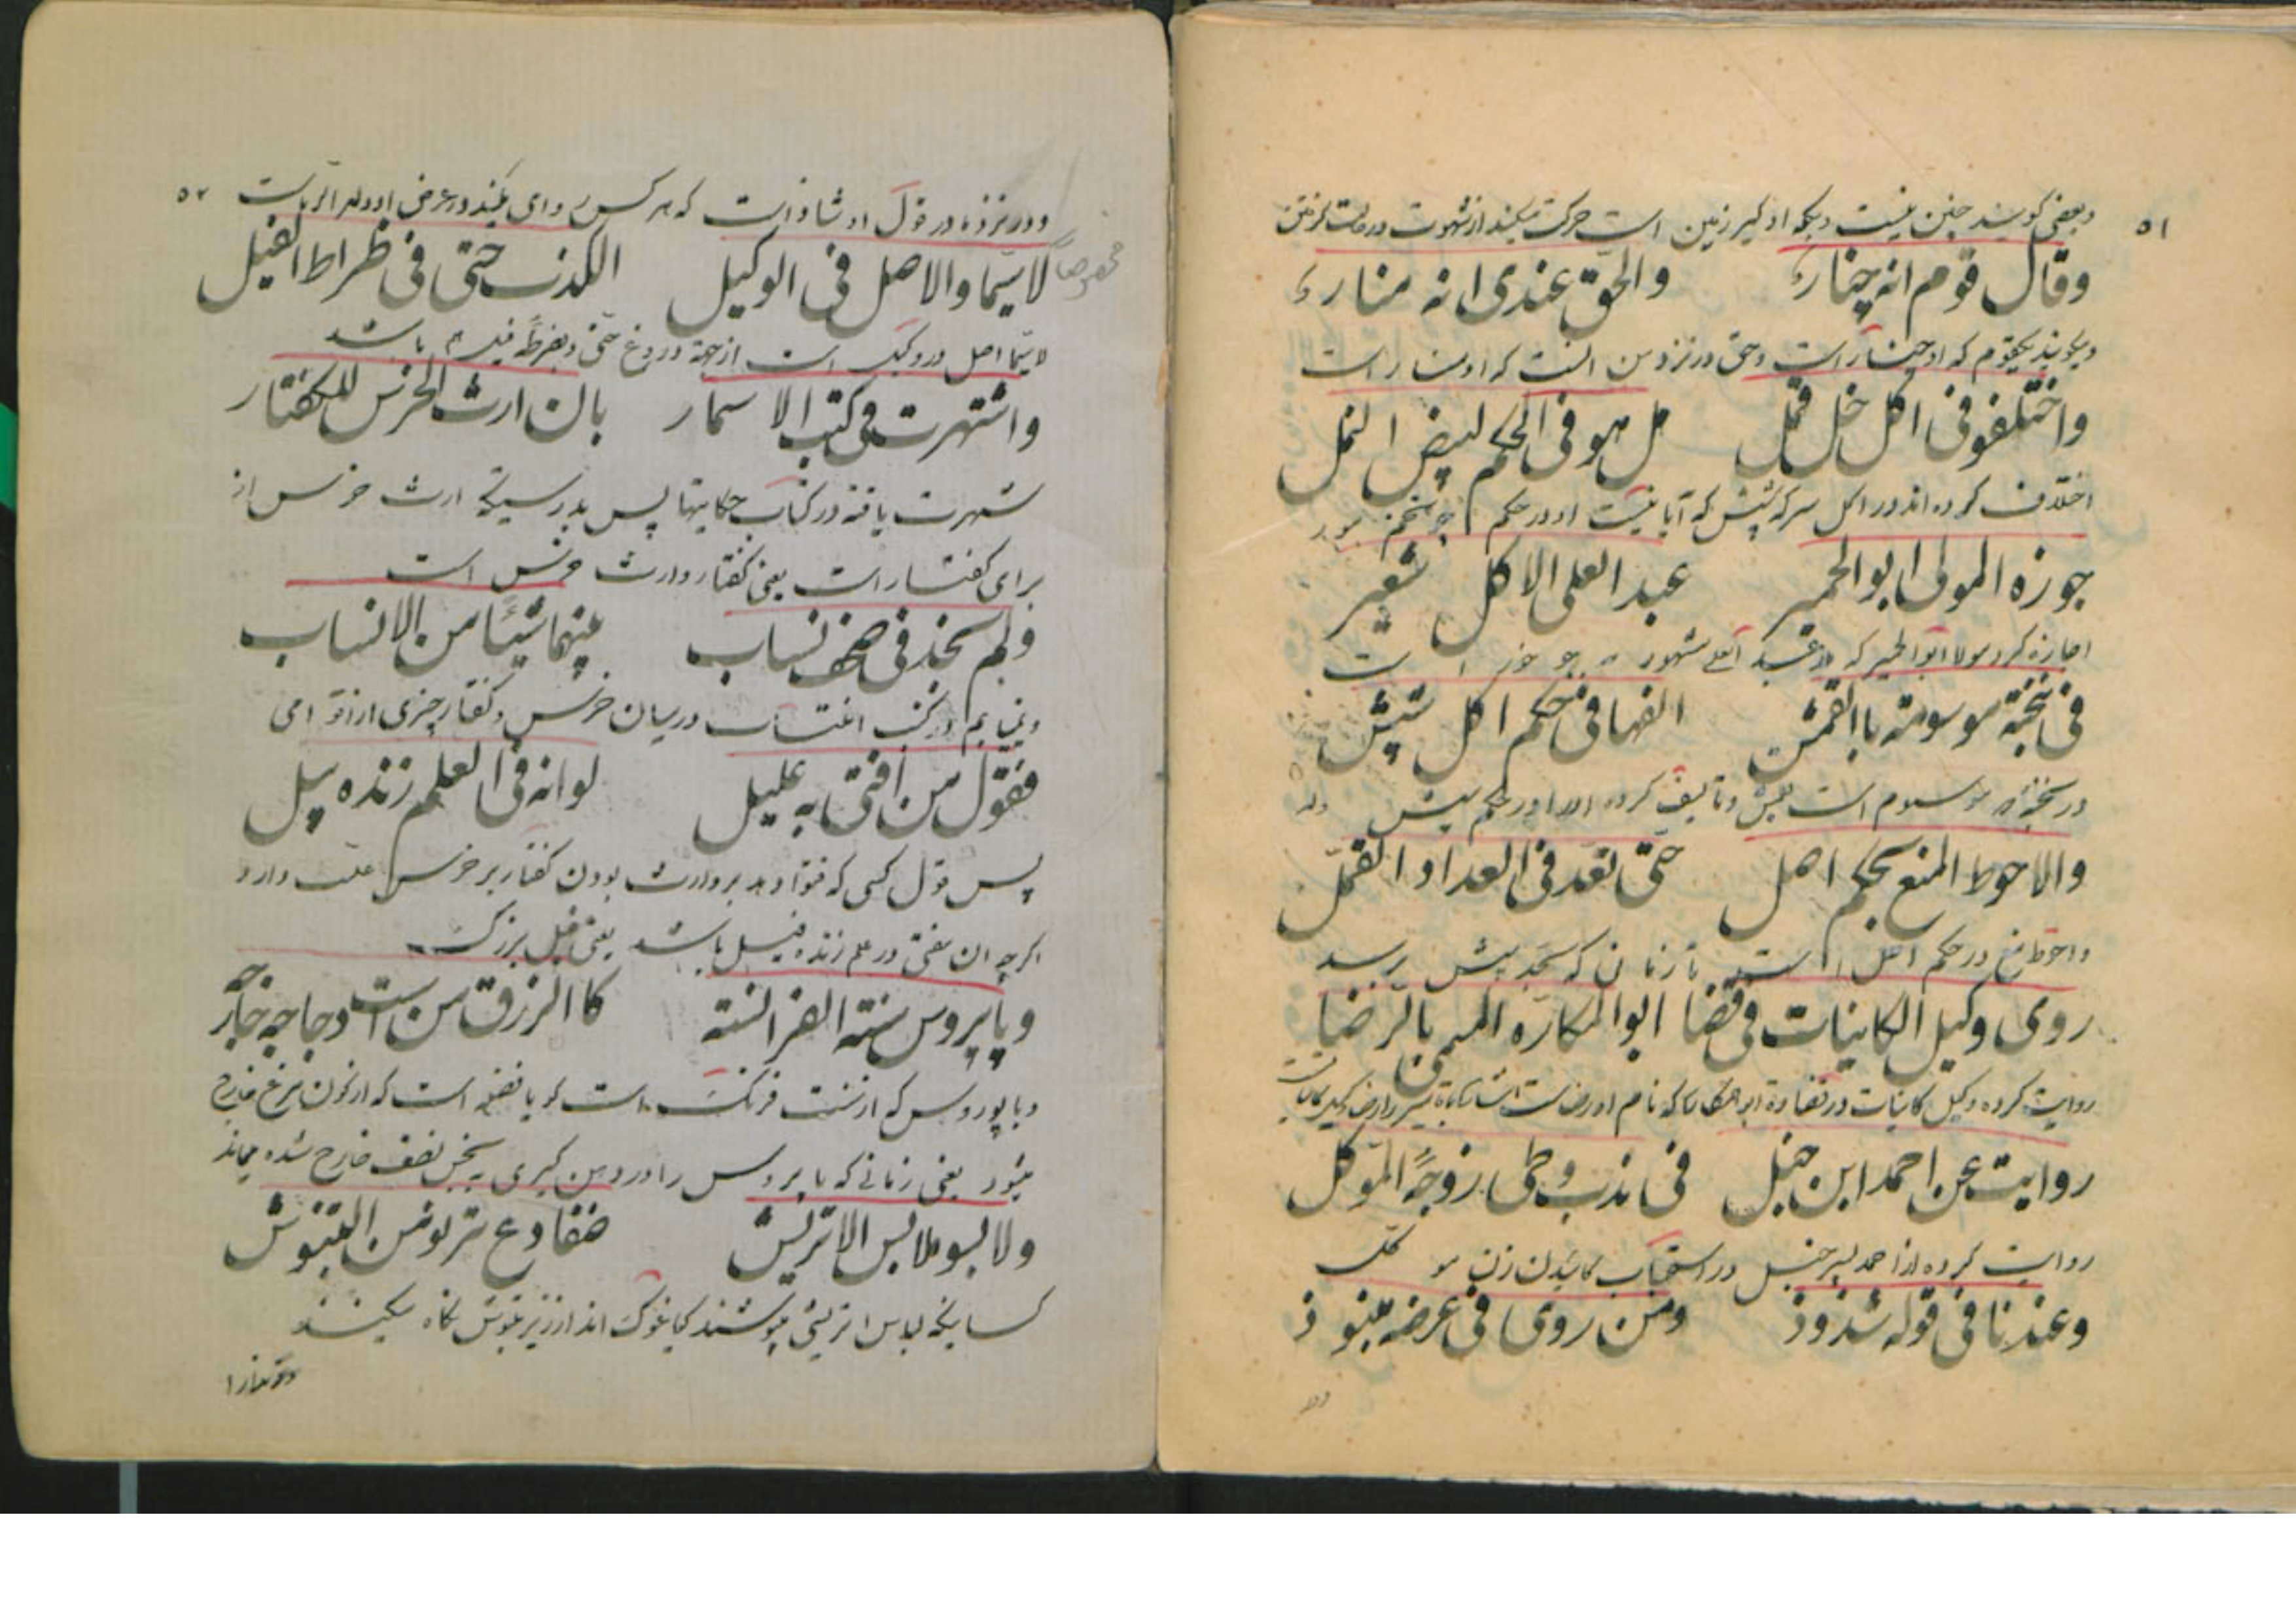 ۵۱
وبعضی گویند چنین نیست دیگر او کیر زمین است حرکت میکند از شهوت در حالت گرفتن
وقال قوم انه چنارء والحق عندی انه منارء
ومیگویند یکقوم که او چنار است وحق در نزد من انست که او منار است
واختلفو فی اکل خل قمل هل هو فی الحکم لبیض النمل
اختلاف کرده اند در اکل سرکه شپش که آیا نیست او در حکم چو تخم مور
جوزه المولی ابو الحمیر عبد العلی الاکل شعیر
اجازه کرد مولا ابو الحمیر که عبد العلی مشهور جو خور است
فی نخبة موسومة باالقمش الفها فی حکم اکل شپش
در نخبه موسوم است بقمش وتالیف کرده او را در حکم شپش
والاحوط المنع بحکم اصل حتی تعد فی العداد القمل
واحوط منع در حکم اصل است تا زمان که بحد شپش رسد
روی وکیل الکاینات فی قضا ابو المکاره المسمی بالرضا
روایت کرده وکیل کاینات در قضاوة ابو المکاره که نام او رضا است
روایت عن احمد ابن حنبل فی ندب وطی زوجة المتوکل
روایت کرده از احمد پسر حنبل در استحباب گاییدن زن متوکل
وعندنا فی قوله شذوذ ومن روی فی عرضه ینبوذ
۵۲
ودر نزد ما در قول او شاذ است که هر کس روای میکند در عرض او
مخصوصاً
لاسیما والاصل فی الوکیل الکذب حتی فی ظراط الفیل
لاسیما اصل در وکیل است از جهة دروغ حتی در ضرطه فیل باشد
واشتهرت فی کتب الاسمار بان ارث الخرس للکفتار
شهرت یافته در کتاب حکایتها پس بدرستیکه ارث خرس از
برای کفتار است یعنی کفتار وارث خرس است
ولم نجد فی صحف نساب بینهما شیئا من الانساب
ونمی یابم در کتب انتساب درمیان خرس وکفتار چیزی از اقوامی
فقول من افتی به علیل لو انه فی العلم زنده پیل
پس قول کسی که فتوا دهد بر وارث بودن کفتار بر خرس علت دارد
اگرچه ان مفتی در علم زنده فیل باشد یعنی فیل بزرگ
وپاپروس سنته الفرانسته کا الزرق من است دجاجه خارجه
وپاپوروس که از سنت فرنگ است گویا فضله است که از کون مرغ خارج
میشود یعنی زمانی که پاپروس را در دهن گیری نصف خارج شده میماند
ولا بسو ملابس الاتریش ضفادع ترلوض البتنوش
کسانیکه لباس اتریشی میپوشند گویا غوک اند از زیر بتنوش نگاه میکنند